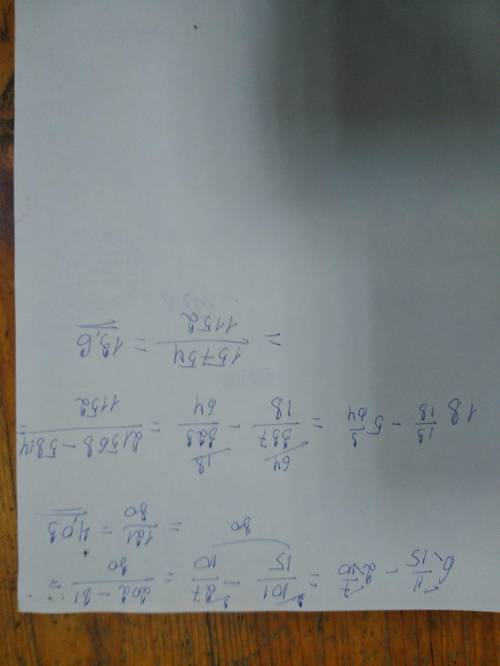 6 11/15 - 2 7/10 = 101/15 - 27/10 = 202 - 81/30 =
30. = 121/30 = 4,03
64 18
18 13/18 - 5 3/64 = 337/18 - 323/64 = 21568 - 5814/1152 =
= 15754/1152 = 13,6